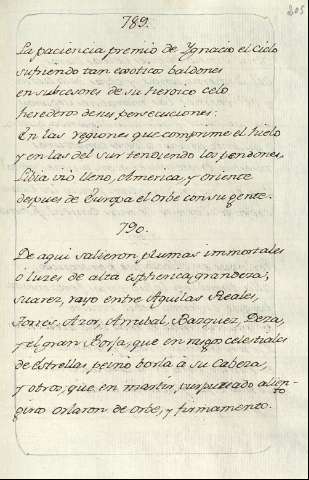 205
789.
La paciencia premio de Ygnacio el cielo
sufriendo tan exoticos baldones
en subcesores de su heroico celo
herederos de sus persecuciones:
En las regiones que comprime el hielo
y en las del sur tendiendo los pendones,
Libia vio lleno, America, y oriente
despues de Europa el orbe con su gente.
790.
De aqui salieron plumas immortales
ò luzes de alta espherica grandeza;
suarez, rayo entre Aguilas Reales,
Torres, Azor, Arrubal, Bazquez, Deza,
y el gran Borja, que en rasgos celestiales
de Estrellas peinò borla à su Cabeza,
y otros, que, en martir, purpureado alien-
to
giro orlaron de orbe, y firmamento.